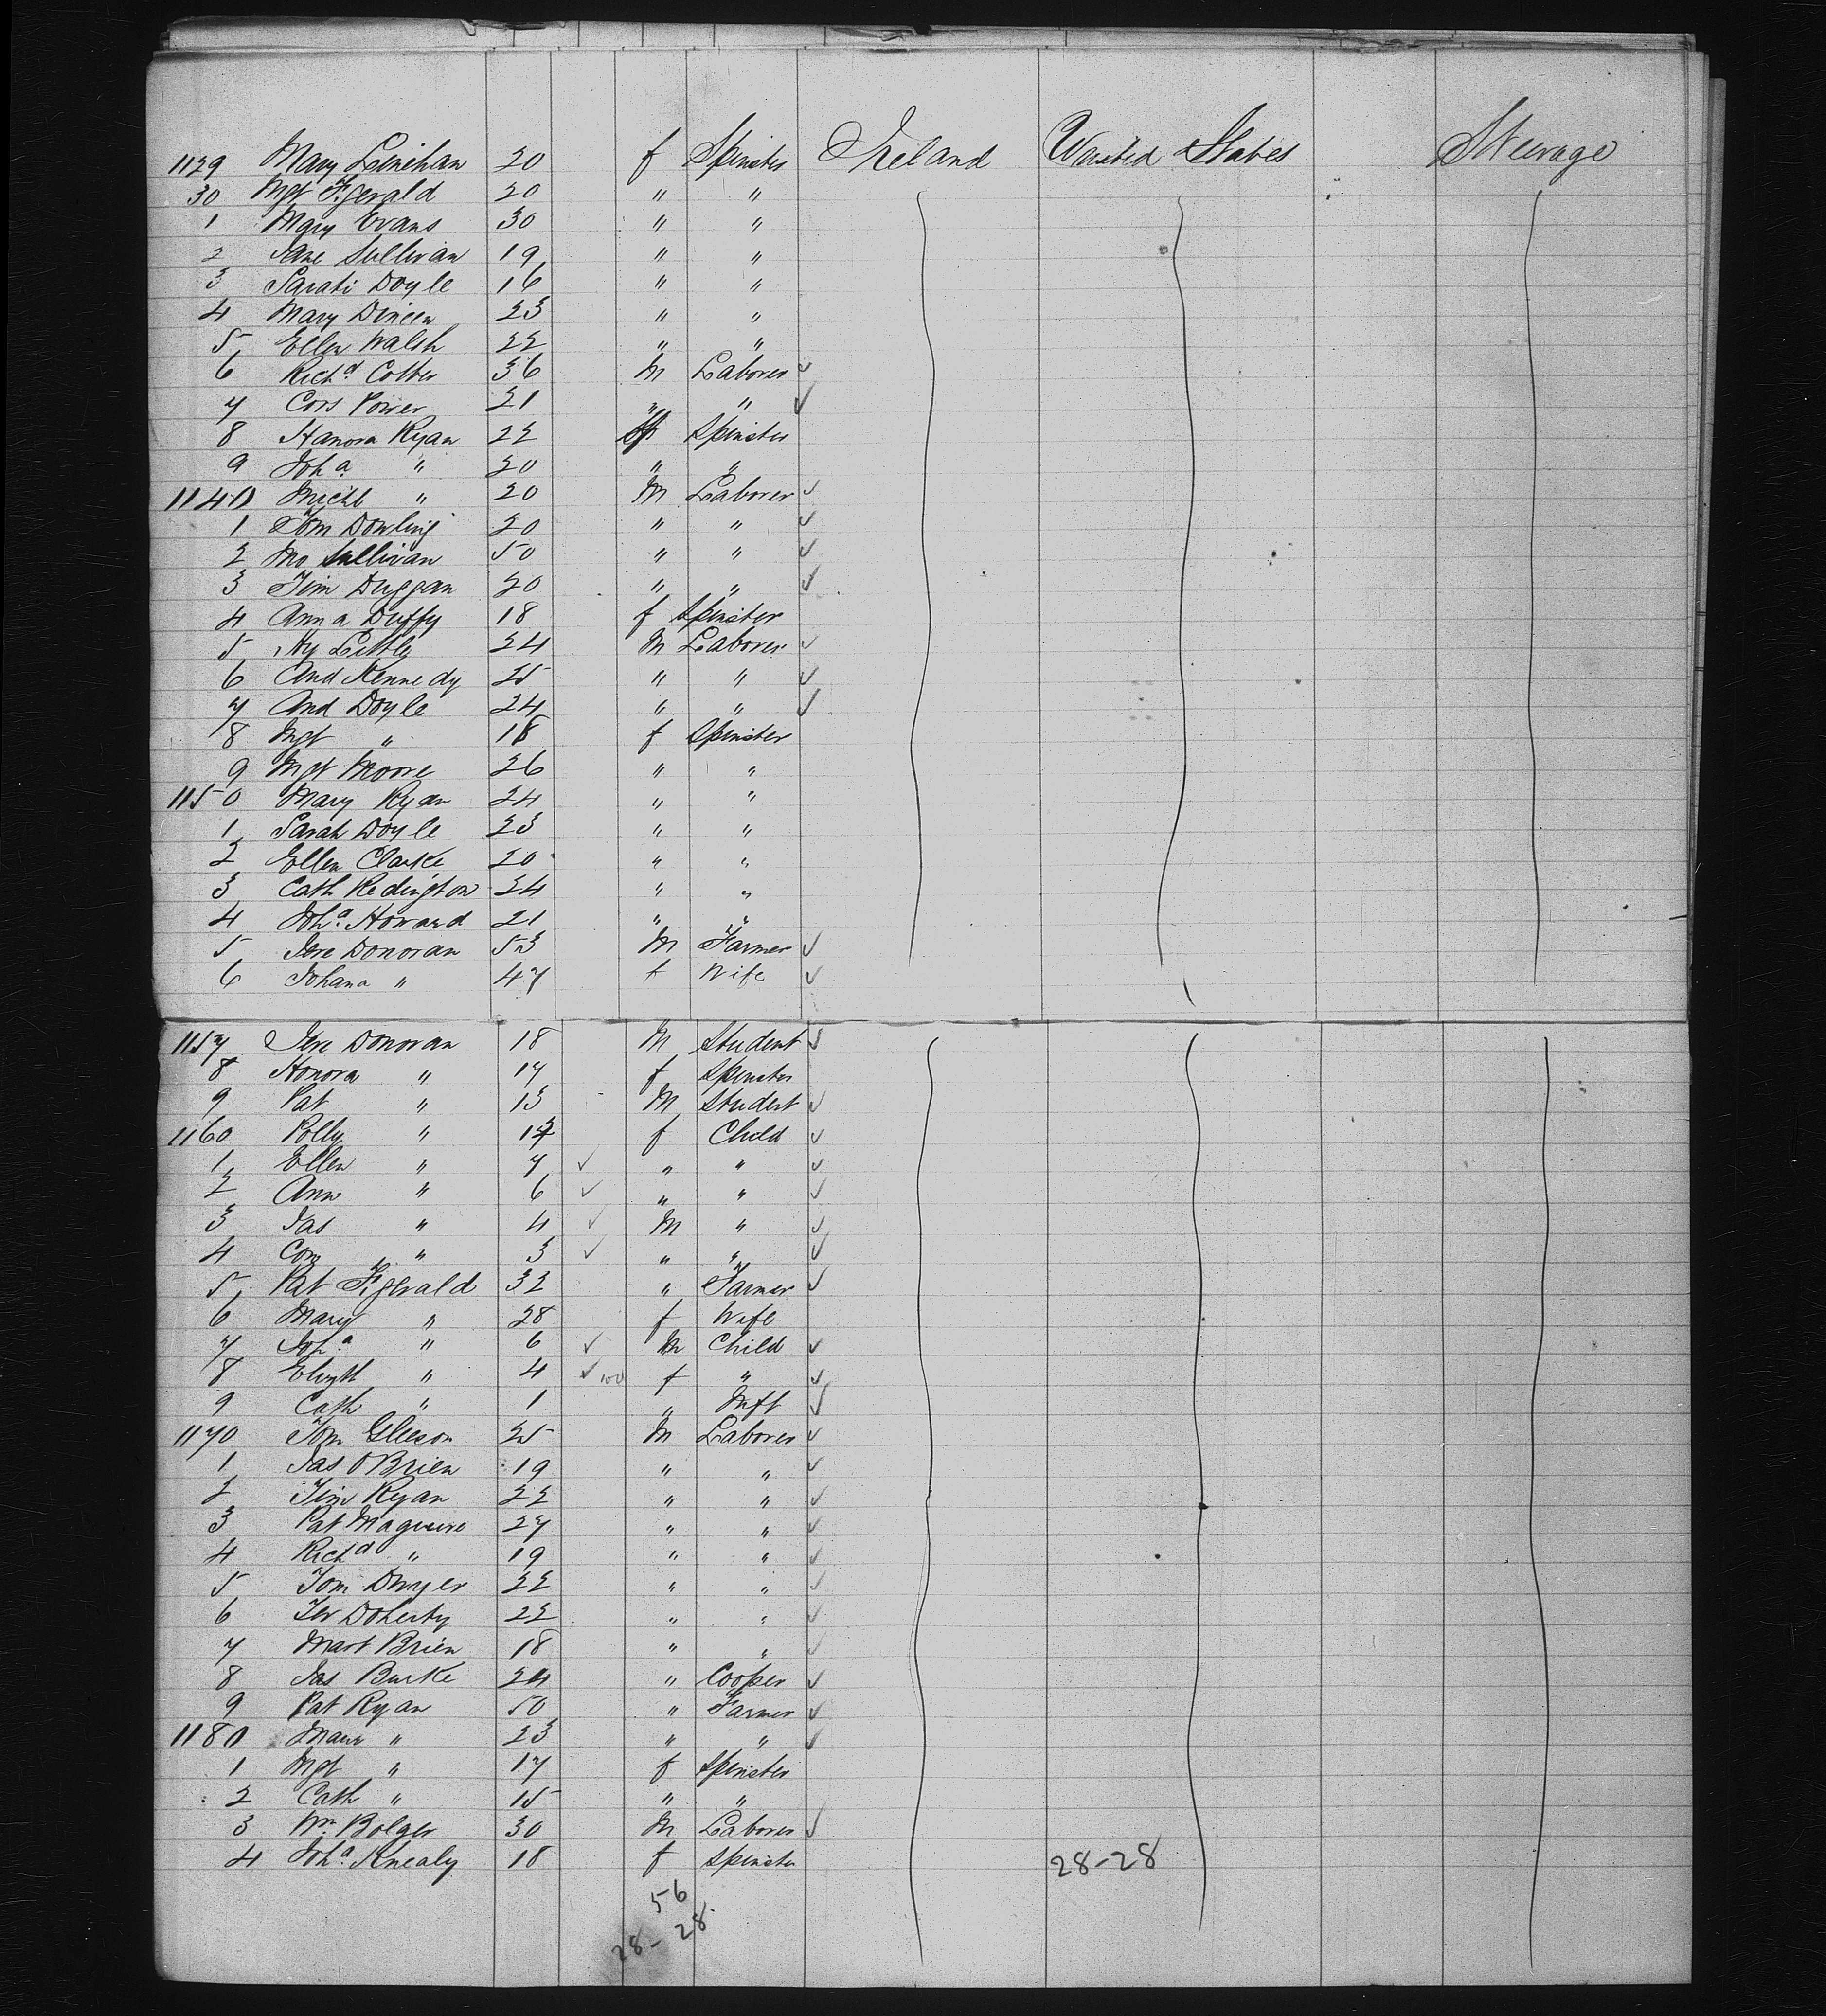 1129 Mary Linihan 20 f Spinster Ireland United States Steerage
30 Mgt Fgerald 20 " "
1 Mary Evans 30 " "
2 Jane Sullivan 19 " "
3 Sarah Doyle 16 " "
4 Mary Dineen 23 " "
5 Ellen Walsh 22 " "
6 Richd. Cotter 36 M Laborer ✓
7 Cors Power 21 " " ✓
8 Hanora Ryan 22 f Spinster
9 Joha " 20 " "
1140 Michl " 20 M Laborer ✓
1 Tom Dowling 20 " " ✓
2 Mo Sullivan 50 " " ✓
3 Tim Duggan 20 " " ✓
4 Anna Duffy 18 f Spinster
5 Hy Little 24 M Laborer ✓
6 And Kennedy 25 " " ✓
7 And Doyle 24 " " ✓
8 Mgt " 18 f Spinster
9 Mgt Moore 26 " "
1150 Mary Ryan 24 " "
1 Sarah Doyle 23 " "
2 Ellen Clarke 20 " "
3 Cath Redington 24 " "
4 Joha. Howard 21 " "
5 Jere Donovan 53 M Farmer ✓
6 Johana " 47 f Wife ✓
1157 Jere Donovan 18 M Student ✓
8 Honora " 17 f Spinster
9 Pat " 13 M Student ✓
1160 Polly " f Child ✓
1 Ellen " 7 ✓ " " ✓
2 Ann " 6 ✓ " " ✓
3 Jas " 4 ✓ M " ✓
4 Con " 3 ✓ " " ✓
5 Pat Fgerald 32 " Farmer ✓
6 Mary " 28 f Wife
7 Joha " 6 ✓ M Child ✓
8 Elizth " 4 ✓ f " ✓
9 Cath " 1 " Inft ✓
1170 Tom Gleeson 25 M Laborer ✓
1 Jas OBrien 19 " " ✓
2 Tim Ryan 22 " " ✓
3 Pat Maguire 27 " " ✓
4 Richd " 19 " " ✓
5 Tom Dwyer 22 " " ✓
6 Ter Doherty 22 " " ✓
7 Mart Brien 18 " " ✓
8 Jas Burke 24 " Cooper ✓
9 Pat Ryan 50 " Farmer ✓
1180 Maur " 23 " " ✓
1 Mgt " 17 f Spinster
2 Cath " 15 " "
3 Wm. Bolger 30 M Laborer ✓
4 Joha. Knealy 18 f Spinster 28-28
56
28-28